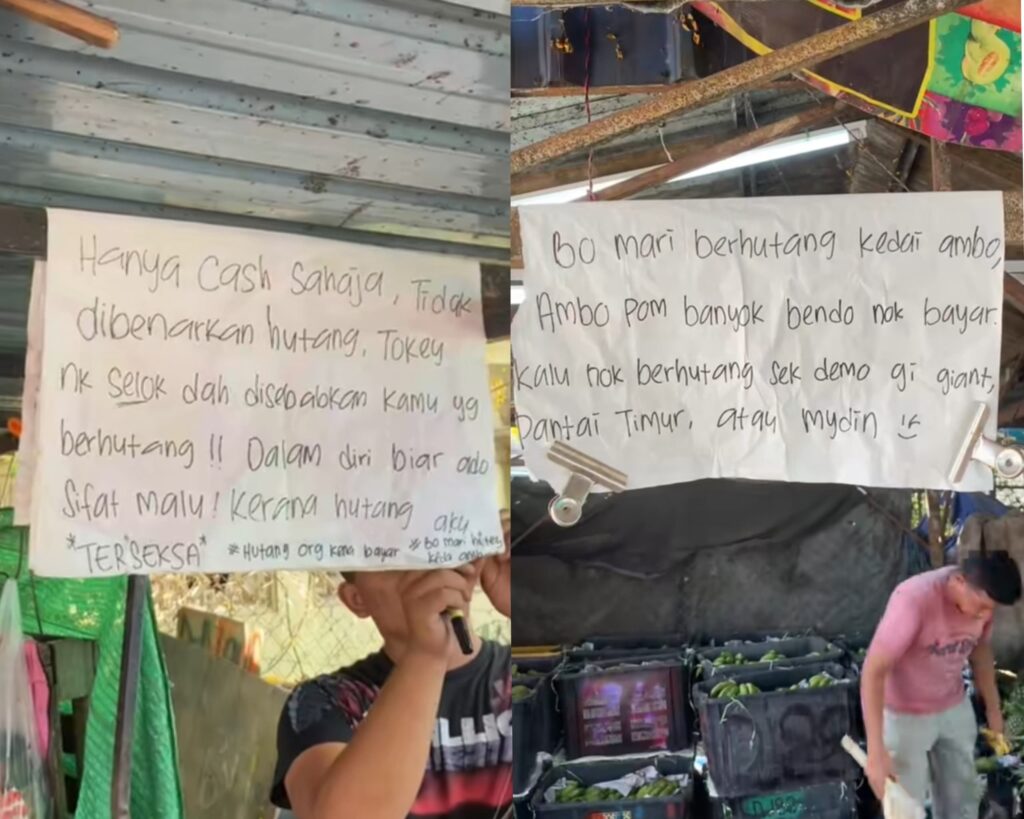 Hanya Cash Sahaja, Tidak
dibenarkan hutang. Tokey
nk selok dah disebabkan kamu yg
berhutang !! Dalam diri biar ado
Sifat malu! Kerana hutang
aku
*TERSEKSA* *Hutang org kena bayar *Bo mari
Bo mari berhutang kedai ambo,
Ambo pom banyok bendo nok bayar.
Kalu nok berhutang sek demo gi giant,
Pantai Timur, atau mydin